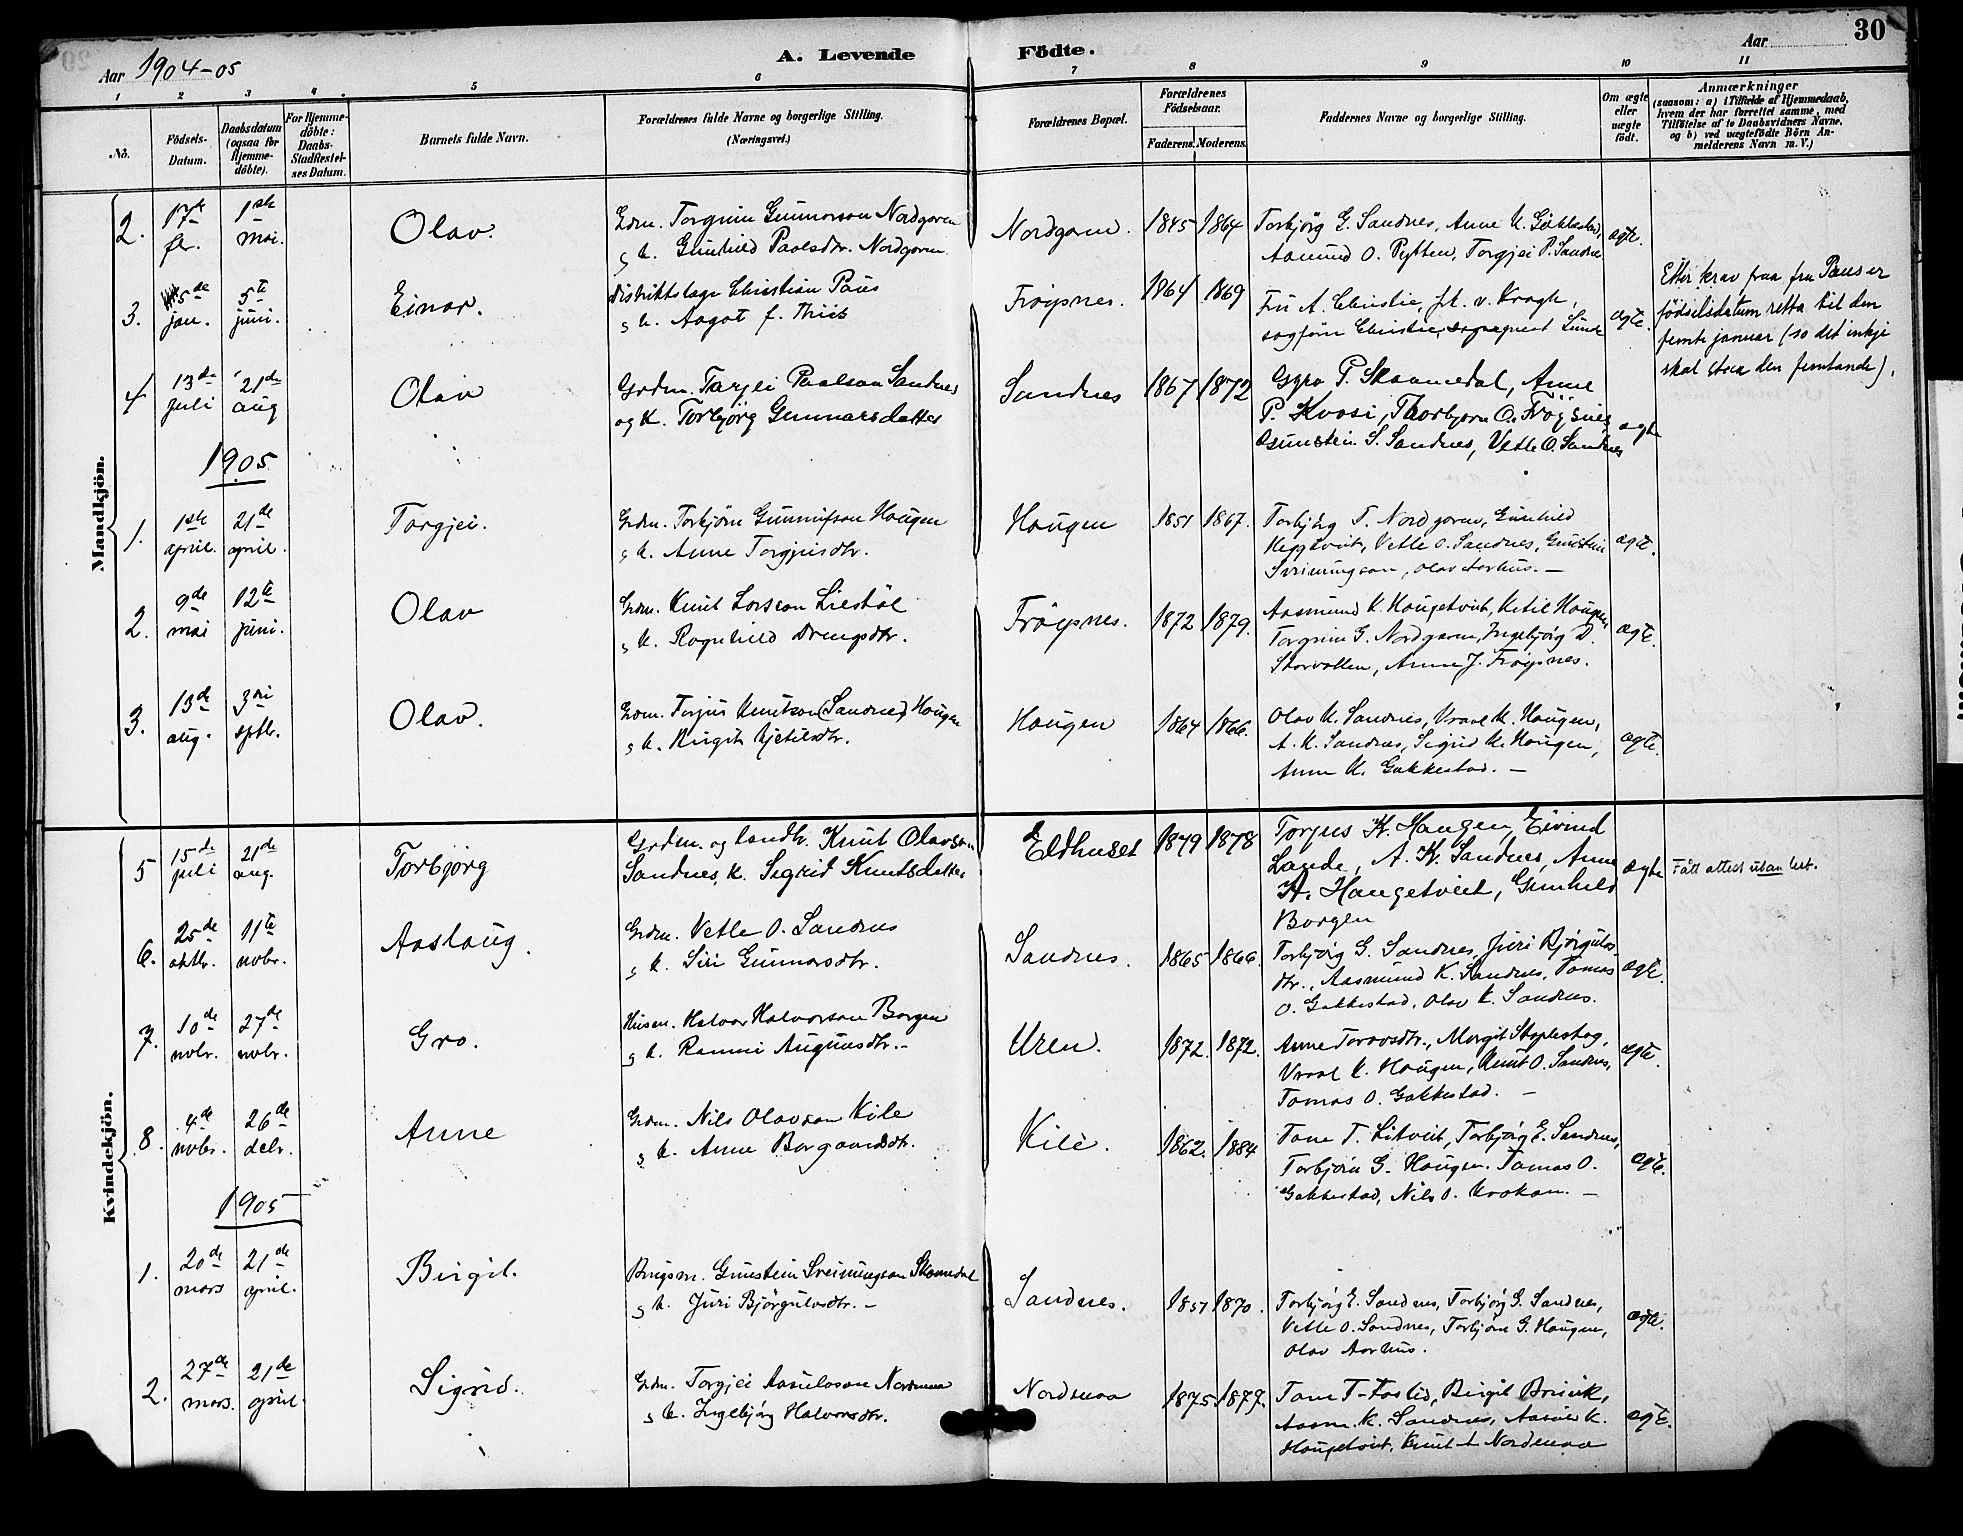 30
A. Levende Födte.
Aar 1904-05
Aar
1 2 3 4 5 6 7 8 9 10 11
No.
Födsels-
Datum.
Daabsdatum
(ogsaa for
Hjemme-
döbte).
For Hjemme-
döbte:
Daabs-
Stadfæstel-
ses Datum.
Barnets fulde Navn.
Forældrenes fulde Navne og borgerlige Stilling.
(Næringsvei.)
Forældrenes Bopæl.
Forældrenes
Födselsaar.
Faderens. Moderens.
Faddernes Navne og borgerlige Stilling.
Om ægte
eller
uægte
födt.
Anmærkninger
(saasom: a) i Tilfælde af Hjemmedaab,
hvem der har forrettet samme, med
Tilföielse af to Daabsvidners Navne,
og b) ved uægtefödte Börn An-
melderens Navn m. V.)
Mandkjön.
2. 17de 1ste mai. Olav.
Grdm. Torgrim Gunnarson Nordgaren
g k. Gunhild Paalsdtr. Nordgaren
Nordgaren. 1845 1864
Torbjörg G. Sandnes, Anne K. Gakkestad,
Aamund O. Pytten, Torgjei P. Sandnes
ægte.
3. 5de jan. 5te juni. Einar.
Distriktslæge Christian Paus
g k. Aagot f. Thiis
Fröysnes. 1864 1869
Fru A. Christie, frk. v. Krogh,
sagförer Christie, Lunde
ægte.
Etter krav fraa fru Paus er
födselsdatum retta til den
femte januar (so det inkje
skal staa den femtande).
4 13de juli 21de aug Olav
Grdm. Tarjei Paalson Sandnes
og K. Torbjörg Gunnarsdatter
Sandnes 1867 1872
Gyro P. Skaamedal, Anne
P. Kvosi, Thorbjorn O. Fröysnes
Gunstein S. Sandnes, Vetle O. Sandnes
ægte
1905
1. 1ste april. 21de april. Torgjei.
Grdm. Torbjörn Gunnufson Haugen
g k. Anne Torgjeisdtr.
Haugen 1851 1867.
Torbjörg T. Nordgaren, Gunhild
Heggtveit, Vetle O. Sandnes, Gunstein
Sveinungson, Olav Aarhus. —
ægte.
2. 9de mai 12te juni. Olav
Grdm. Knut Larsson Liestöl
g k. Ragnhild Drengsdtr.
Fröysnes. 1872 1879.
Aasmund K. Haugetveit, Ketil Haugen
Torgrim G. Nordgaren, Ingebjörg D.
Storvollen, Anne J. Fröysnes.
ægte.
3. 13de aug. 3di sptbr. Olav.
Grdm. Torjus Knutson (Sandnes) Haugen
g k. Birgit Kjetilsdtr.
Haugen 1864 1866.
Olav K. Sandnes, Vraal K. Haugen,
A. K. Sandnes, Sigrid K. Haugen,
Anne K. Gakkestad. —
ægte.
Kvindekjön.
5 15de juli 21de aug. Torbjörg
Grdm. og landh. Knut Olavson
Sandnes, k. Sigrid Knutsdatter
Eldhuset 1879 1878
Torjus K. Haugen, Eivind
Lande, A. K. Sandnes, Anne
K. Haugetveit, Gunhild
Borgen
ægte
Fått attest utan
6. 25de oktbr. 11te novbr. Aaslaug.
Grdm. Vetle O. Sandnes
g k. Siri Gunnarsdtr.
Sandnes. 1865 1866.
Torbjörg G. Sandnes, Juri Björgulvs-
dtr., Aasmund K. Sandnes, Tomas
O. Gakkestad, Olav K. Sandnes.
ægte.
7. 10de novbr. 27de novbr. Gro.
Husm. Halvor Halvorson Borgen
g k. Ramni Augunsdtr.
Uren. 1872. 1872.
Anne Taraldsdtr., Margit Stoplestog,
Vraal K. Haugen, Knut O. Sandnes,
Tomas O. Gakkestad. —
ægte.
8. 4de novbr. 26de debr. Anne
Grdm. Nils Olavson Kile
g k. Anne Borgarsdtr.
Kile. 1862. 1884
Tone T. Litveit, Torbjörg E. Sandnes,
Torbjörn G. Haugen. Tomas O.
Gakkestad, Nils O. Krokan. —
ægte.
1905
1. 20de mars 21de april. Birgit.
Bugsm. Gunstein Sveinungson Skomedal
g k. Juri Björgulvsdtr. —
Sandnes. 1851 1870.
Torbjörg E. Sandnes, Torbjörg G. Sandnes,
Vetle O. Sandnes, Torbjörn G. Haugen,
Olav Aarhus.
ægte.
2. 27de mars. 21de april. Sigrid.
Grdm. Torgjei Aasulvson Nordenaa
g k. Ingebjörg Halvorsdtr.
Nordenaa 1875 1879.
Tone T. Faslid, Birgit Brisvik,
Aasm. K. Sandnes, Aasulv K.
Haugetveit, Knut Nordenaa
ægte.